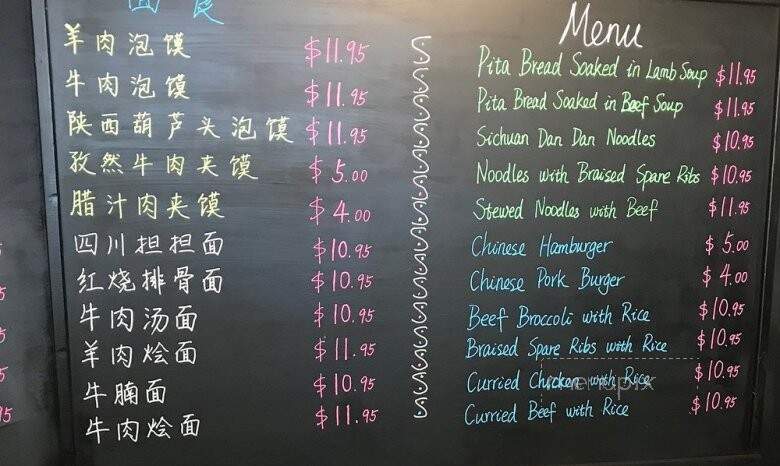 面食
羊肉泡馍 $11.95
牛肉泡馍 $11.95
陕西葫芦头泡馍 $11.95
孜然牛肉夹馍 $5.00
腊汁肉夹馍 $4.00
四川担担面 $10.95
红烧排骨面 $10.95
牛肉汤面 $10.95
羊肉烩面 $11.95
牛腩面 $10.95
牛肉烩面 $11.95
Menu
Pita Bread Soaked in Lamb Soup $11.95
Pita Bread Soaked in Beef Soup $11.95
Sichuan Dan Dan Noodles $10.95
Noodles with Braised Spare Ribs $10.95
Stewed Noodles with Beef $11.95
Chinese Hamburger $5.00
Chinese Pork Burger $4.00
Beef Broccoli with Rice $10.95
Braised Spare Ribs with Rice $10.95
Curried Chicken with Rice $10.95
Curried Beef with Rice $10.95
menupix